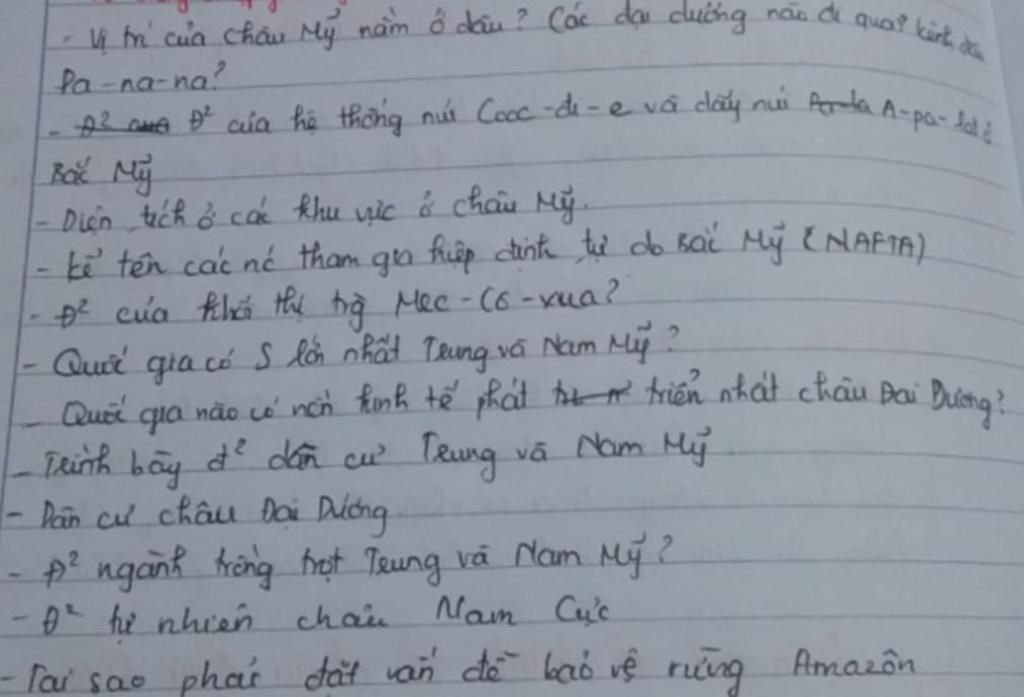 - Vị trí của châu Mỹ nằm ở đâu? Các đại dương nào đi qua? kênh đào
Pa-na-na?
- Đ² của hệ thống núi Cooc-di-e và dãy núi A-pa-lat ở
Bắc Mỹ
- Diện tích ở các khu vực ở châu Mỹ.
- kể tên các nc tham gia hiệp định tự do Bắc Mỹ (NAFTA)
- Đ² của khối thị trg Mec-Co-xua?
- Quốc gia có S lớn nhất Trung và Nam Mỹ?
- Quốc gia nào có nền kinh tế phát triển nhất châu Đại Dương?
- Trình bày đ² dân cư Trung và Nam Mỹ
- Dân cư châu Đại Dương
- Đ² ngành trồng trọt Trung và Nam Mỹ?
- Đ² tự nhiên châu Nam Cực
- Tại sao phải đặt vấn đề bảo vệ rừng Amazôn